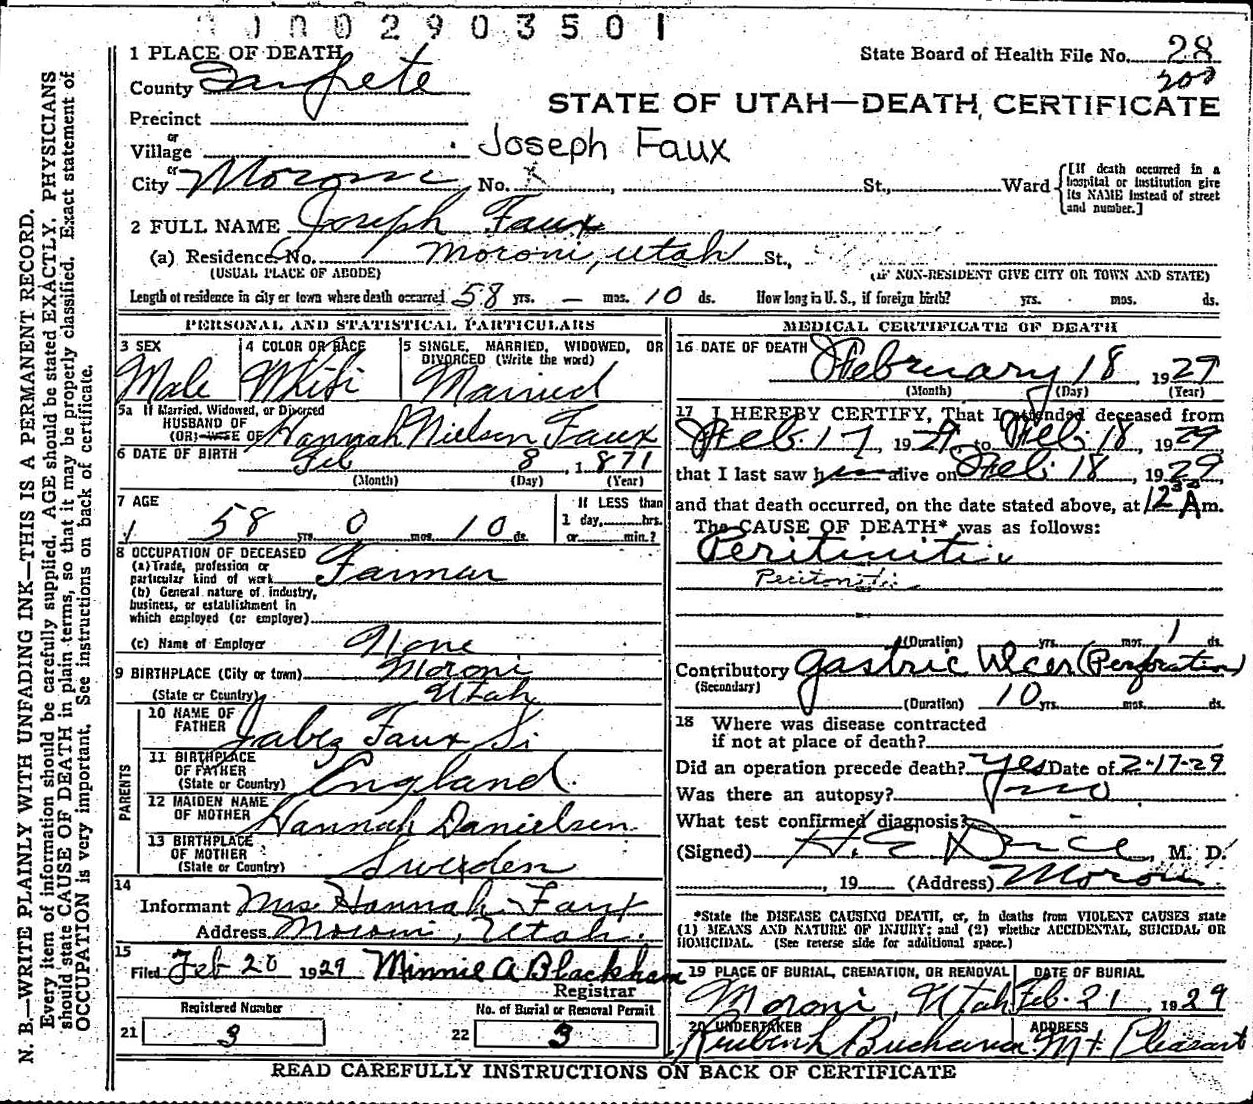 0 1 0 0 2 9 0 3 5 0 1
1 PLACE OF DEATH
State Board of Health File No. 28
200
County Sanpete
STATE OF UTAH—DEATH CERTIFICATE
Precinct
or
Village
Joseph Faux
or
City Moroni No. x St., Ward
[If death occurred in a hospital or institution give its NAME instead of street and number.]
2 FULL NAME Joseph Faux
(a) Residence No. Moroni, Utah St.,
(USUAL PLACE OF ABODE) (IF NON-RESIDENT GIVE CITY OR TOWN AND STATE)
Length of residence in city or town where death occurred 58 yrs. — mos. 10 ds. How long in U. S., if foreign birth? yrs. mos. ds.
PERSONAL AND STATISTICAL PARTICULARS
3 SEX
Male
4 COLOR OR RACE
White
5 SINGLE, MARRIED, WIDOWED, OR DIVORCED (Write the word)
Married
5a If Married, Widowed, or Divorced
HUSBAND OF
(OR) WIFE OF Hannah Nielsen Faux
6 DATE OF BIRTH Feb 8, 1871
(Month) (Day) (Year)
7 AGE
58 yrs. 0 mos. 10 ds.
If LESS than
1 day, hrs.
or min.?
8 OCCUPATION OF DECEASED
(a) Trade, profession or
particular kind of work Farmer
(b) General nature of industry,
business, or establishment in
which employed (or employer)
(c) Name of Employer None
9 BIRTHPLACE (City or town) Moroni
(State or Country) Utah
PARENTS
10 NAME OF
FATHER Jabez Faux Sr
11 BIRTHPLACE
OF FATHER
(State or Country) England
12 MAIDEN NAME
OF MOTHER Hannah Danielsen
13 BIRTHPLACE
OF MOTHER
(State or Country) Sweden
14
Informant Mrs. Hannah Faux
Address Moroni, Utah.
15
Filed Feb 20 1929 Minnie A Blackham
Registrar
Registered Number
21 3
No. of Burial or Removal Permit
22 3
MEDICAL CERTIFICATE OF DEATH
16 DATE OF DEATH February 18, 1929
(Month) (Day) (Year)
17 I HEREBY CERTIFY, That I attended deceased from
Feb. 17 1929, to Feb. 18, 1929
that I last saw him alive on Feb. 18, 1929
and that death occurred, on the date stated above, at 12 30 A m.
The CAUSE OF DEATH* was as follows:
Peritinitis
Peritonitis
(Duration) yrs. mos. 1 ds.
Contributory Gastric Ulcer (Perforation)
(Secondary)
(Duration) 10 yrs. mos. ds.
18 Where was disease contracted
if not at place of death?
Did an operation precede death? Yes Date of 2-17-29
Was there an autopsy? no
What test confirmed diagnosis?
(Signed) H. E. Dice, M. D.
, 19 (Address) Moroni
*State the DISEASE CAUSING DEATH, or, in deaths from VIOLENT CAUSES state
(1) MEANS AND NATURE OF INJURY; and (2) whether ACCIDENTAL, SUICIDAL OR
HOMICIDAL. (See reverse side for additional space.)
19 PLACE OF BURIAL, CREMATION, OR REMOVAL
Moroni, Utah
DATE OF BURIAL
Feb. 21 1929
20 UNDERTAKER
Buchanan
ADDRESS
Mt. Pleasant
READ CAREFULLY INSTRUCTIONS ON BACK OF CERTIFICATE
N. B.—WRITE PLAINLY WITH UNFADING INK—THIS IS A PERMANENT RECORD.
Every item of information should be carefully supplied. AGE should be stated EXACTLY. PHYSICIANS
should state CAUSE OF DEATH in plain terms, so that it may be properly classified. Exact statement of
OCCUPATION is very important. See instructions on back of certificate.